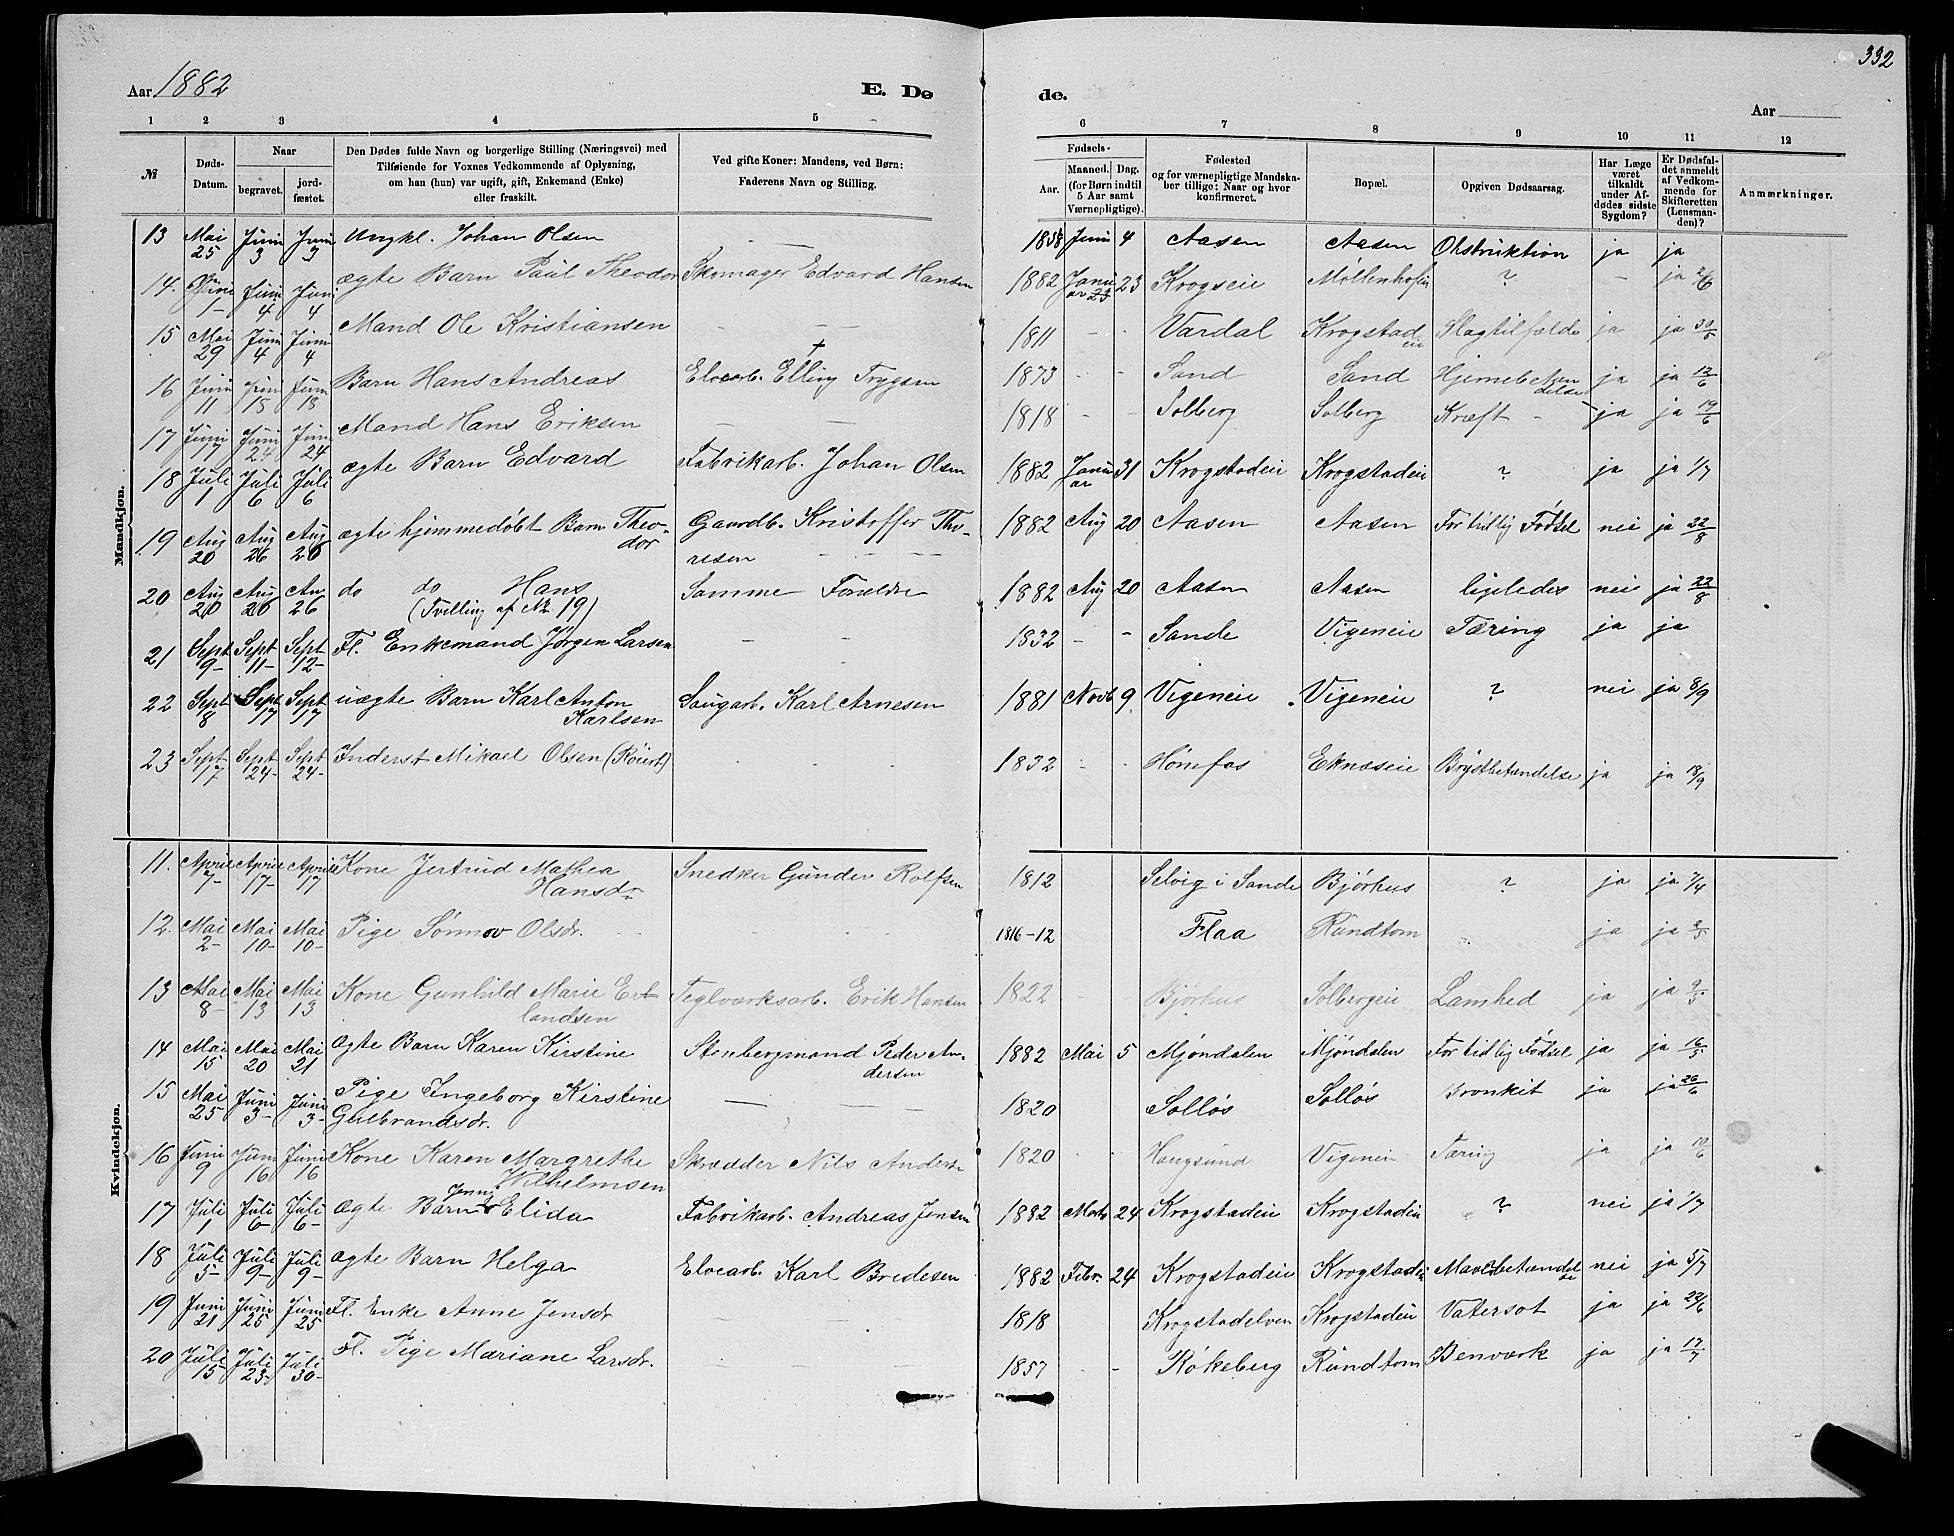 332
Aar 1882
E. Dø
de.
Aar
1 2 3 4 5 6 7 8 9 10 11 12
№
Døds-Datum.
Naar
begravet.
jordfæstet.
Den Dødes fulde Navn og borgerlige Stilling (Næringsvei) med
Tilføiende for Voxnes Vedkommende af Oplysning,
om han (hun) var ugift, gift, Enkemand (Enke)
eller fraskilt.
Ved gifte Koner: Mandens, ved Børn:
Faderens Navn og Stilling.
Fødsels-
Aar.
Maaned. Dag.
(for Børn indtil
5 Aar samt
Værnepligtige).
Fødested
og for værnepligtige Mandska-
ber tillige: Naar og hvor
konfirmeret.
Bopæl.
Opgiven Dødsaarsag.
Har Læge
været
tilkaldt
under Af-
dødes sidste
Sygdom?
Er Dødsfal-
det anmeldt
af Vedkom-
mende for
Skifteretten
(Lensman-
den)?
Anmærkninger.
Mandkjøn.
13 Mai 25 Juni 3 Juni 3 Ungkl. Johan Olsen — 1858 Juni 4 Aasen Aasen Obstruktion ja ja
14 Juni 1 Juni 4 Juni 4 ægte Barn Paul Theodor Skomager Edvard Hansen 1882 Januar 23 Krogseie Möllenhofen ? – ja 2/6
15 Mai 29 Juni 4 Juni 4 Mand Ole Kristiansen — — 1811 - - Vardal Krogstadeie Slagtilfælde ja ja 30/5
16 Juni 11 Juni 15 Juni 18 Barn Hans Andreas Elvearb. Elling Trygsen † 1873 - - Sand Sand Hjernebetændelse ja ja 12/6
17 Juni 17 Juni 24 Juni 24 Mand Hans Eriksen — — 1818 - - Solberg Solberg Kræft - ja ja 19/6
18 Juli 1 Juli 6 Juli 6 ægte Barn Edvard Fabrikarb. Johan Olsen 1882 Januar 31 Krogstadeie Krogstadeie ? ja ja 1/7
19 Aug 20 Aug 26 Aug 26 ægte hjemmedøbt Barn Theodor Gaardb. Kristoffer Thoresen 1882 Aug 20 Aasen Aasen For tidlig Fødsel nei ja 22/8
20 Aug 20 Aug 26 Aug 26 do do Hans (Tvilling af № 19) Samme Forældre 1882 Aug 20 Aasen Aasen ligeledes nei ja 22/8
21 Sept 9 Sept 11 Sept 12 Fl. Enkemand Jørgen Larsen - - 1832 - - Sande Vigeneie Tæring ja ja
22 Sept 8 Sept 17 Sept 17 uægte Barn Karl Anton Karlsen Saugarb. Karl Arnesen 1881 Novb 9 Vigeneie Vigeneie ? nei ja 8/9
23 Sept 17 Sept 24 Sept 24 Inderst Mikael Olsen - - 1832 - - Hönefos Eknæseie Brystbetændelse ja ja 18/9
Kvindekjøn.
11. April 7 April 17 April 17 Kone Jertrud Mathea Hansdr Snedker Gunder Rolfsen 1812 Selvig i Sande Bjørhus ? ja ja 7/4
12. Mai 2 Mai 10 Mai 10 Pige Sønnov Olsdr. - - 1816-12 Flaa Rundtom ja ja 2/5
13 Mai 8 Mai 13 Mai 13 Kone Gunhild Marie Erlandsen Teglværksarb. Erik Hansen 1822 - - Bjørhus Solbergeie Lamhed ja ja 9/5
14 Mai 15 Mai 20 Mai 21 ægte Barn Karen Kirstine Stenbergmand Peder Andersen 1882 Mai 5 Mjøndalen Mjøndalen For tidlig Fødsel ja ja 16/5
15 Mai 25 Juni 3 Juni 3 Pige Ingeborg Kirstine Gulbrandsdr. — — 1820 Solløs Solløs Bronkit ja ja 26/6
16 Juni 9 Juni 16 Juni 16 Kone Karen Margrethe Wilhelmsen Skrædder Nils Anders 1820 - - Haugsund Vigeneie Tæring ja ja 10/6
17 Juli 1 Juli 6 Juli 6 ægte Barn Jenny Elida Fabrikarb. Andreas Jensen 1882 Marts 24 Krogstadeie Krogstadeie ? nei ja 1/7
18 Juli 5 Juli 9 Juli 9 ægte Barn Helga Elvearb. Karl Bredesen 1882 Febr. 24 Krogstadeie Krogstadeie Mavebetændelse nei ja 5/7
19 Juni 21 Juni 25 Juni 25 Fl. Enke Anne Jensdr - - 1818 Krogstadelven Krogstadeie Vatersot ja ja 22/6
20 Juli 15 Juli 23 Juli 30 Fl. Pige Mariane Larsdr. 1857 - Røkeberg Rundtom Benværk ja ja 17/7